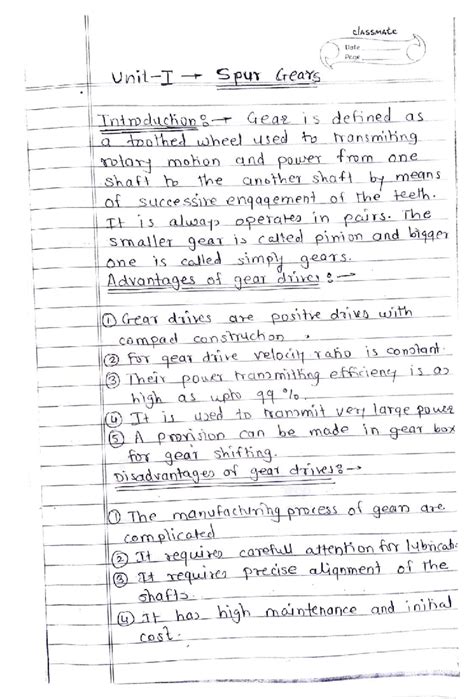 classmate
Date
Page
Unit-I → Spur Gears
Introduction:→ Gear is defined as
a toothed wheel used to transmiting
rotary motion and power from one
shaft to the another shaft by means
of successive engagement of the teeth.
It is always operates in pairs. The
smaller gear is called pinion and bigger
one is called simply gears.
Advantages of gear drives:→
① Gear drives are positive drives with
compact construction.
② For gear drive velocity ratio is constant.
③ Their power transmitting efficiency is as
high as upto 99%.
④ It is used to transmit very large power
⑤ A provision can be made in gear box
for gear shifting.
Disadvantages of gear drives:→
① The manufacturing process of gears are
complicated
② It requires carefull attention for lubricatc
③ It requires precise alignment of the
shafts.
④ It has high maintenance and initial
cost.